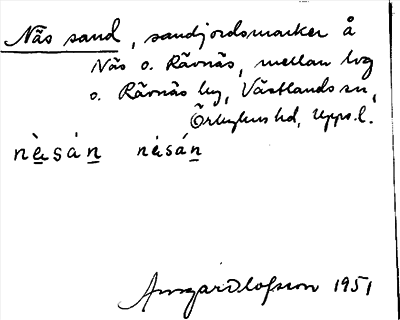 Näs sand, sandjordsmarker å
Näs o. Rävnäs, mellan lvg
o. Rävnäs by, Västlands sn,
Örbyhus hd, Upps. l.
nèsán nésán
Ansgar Olofsson 1951